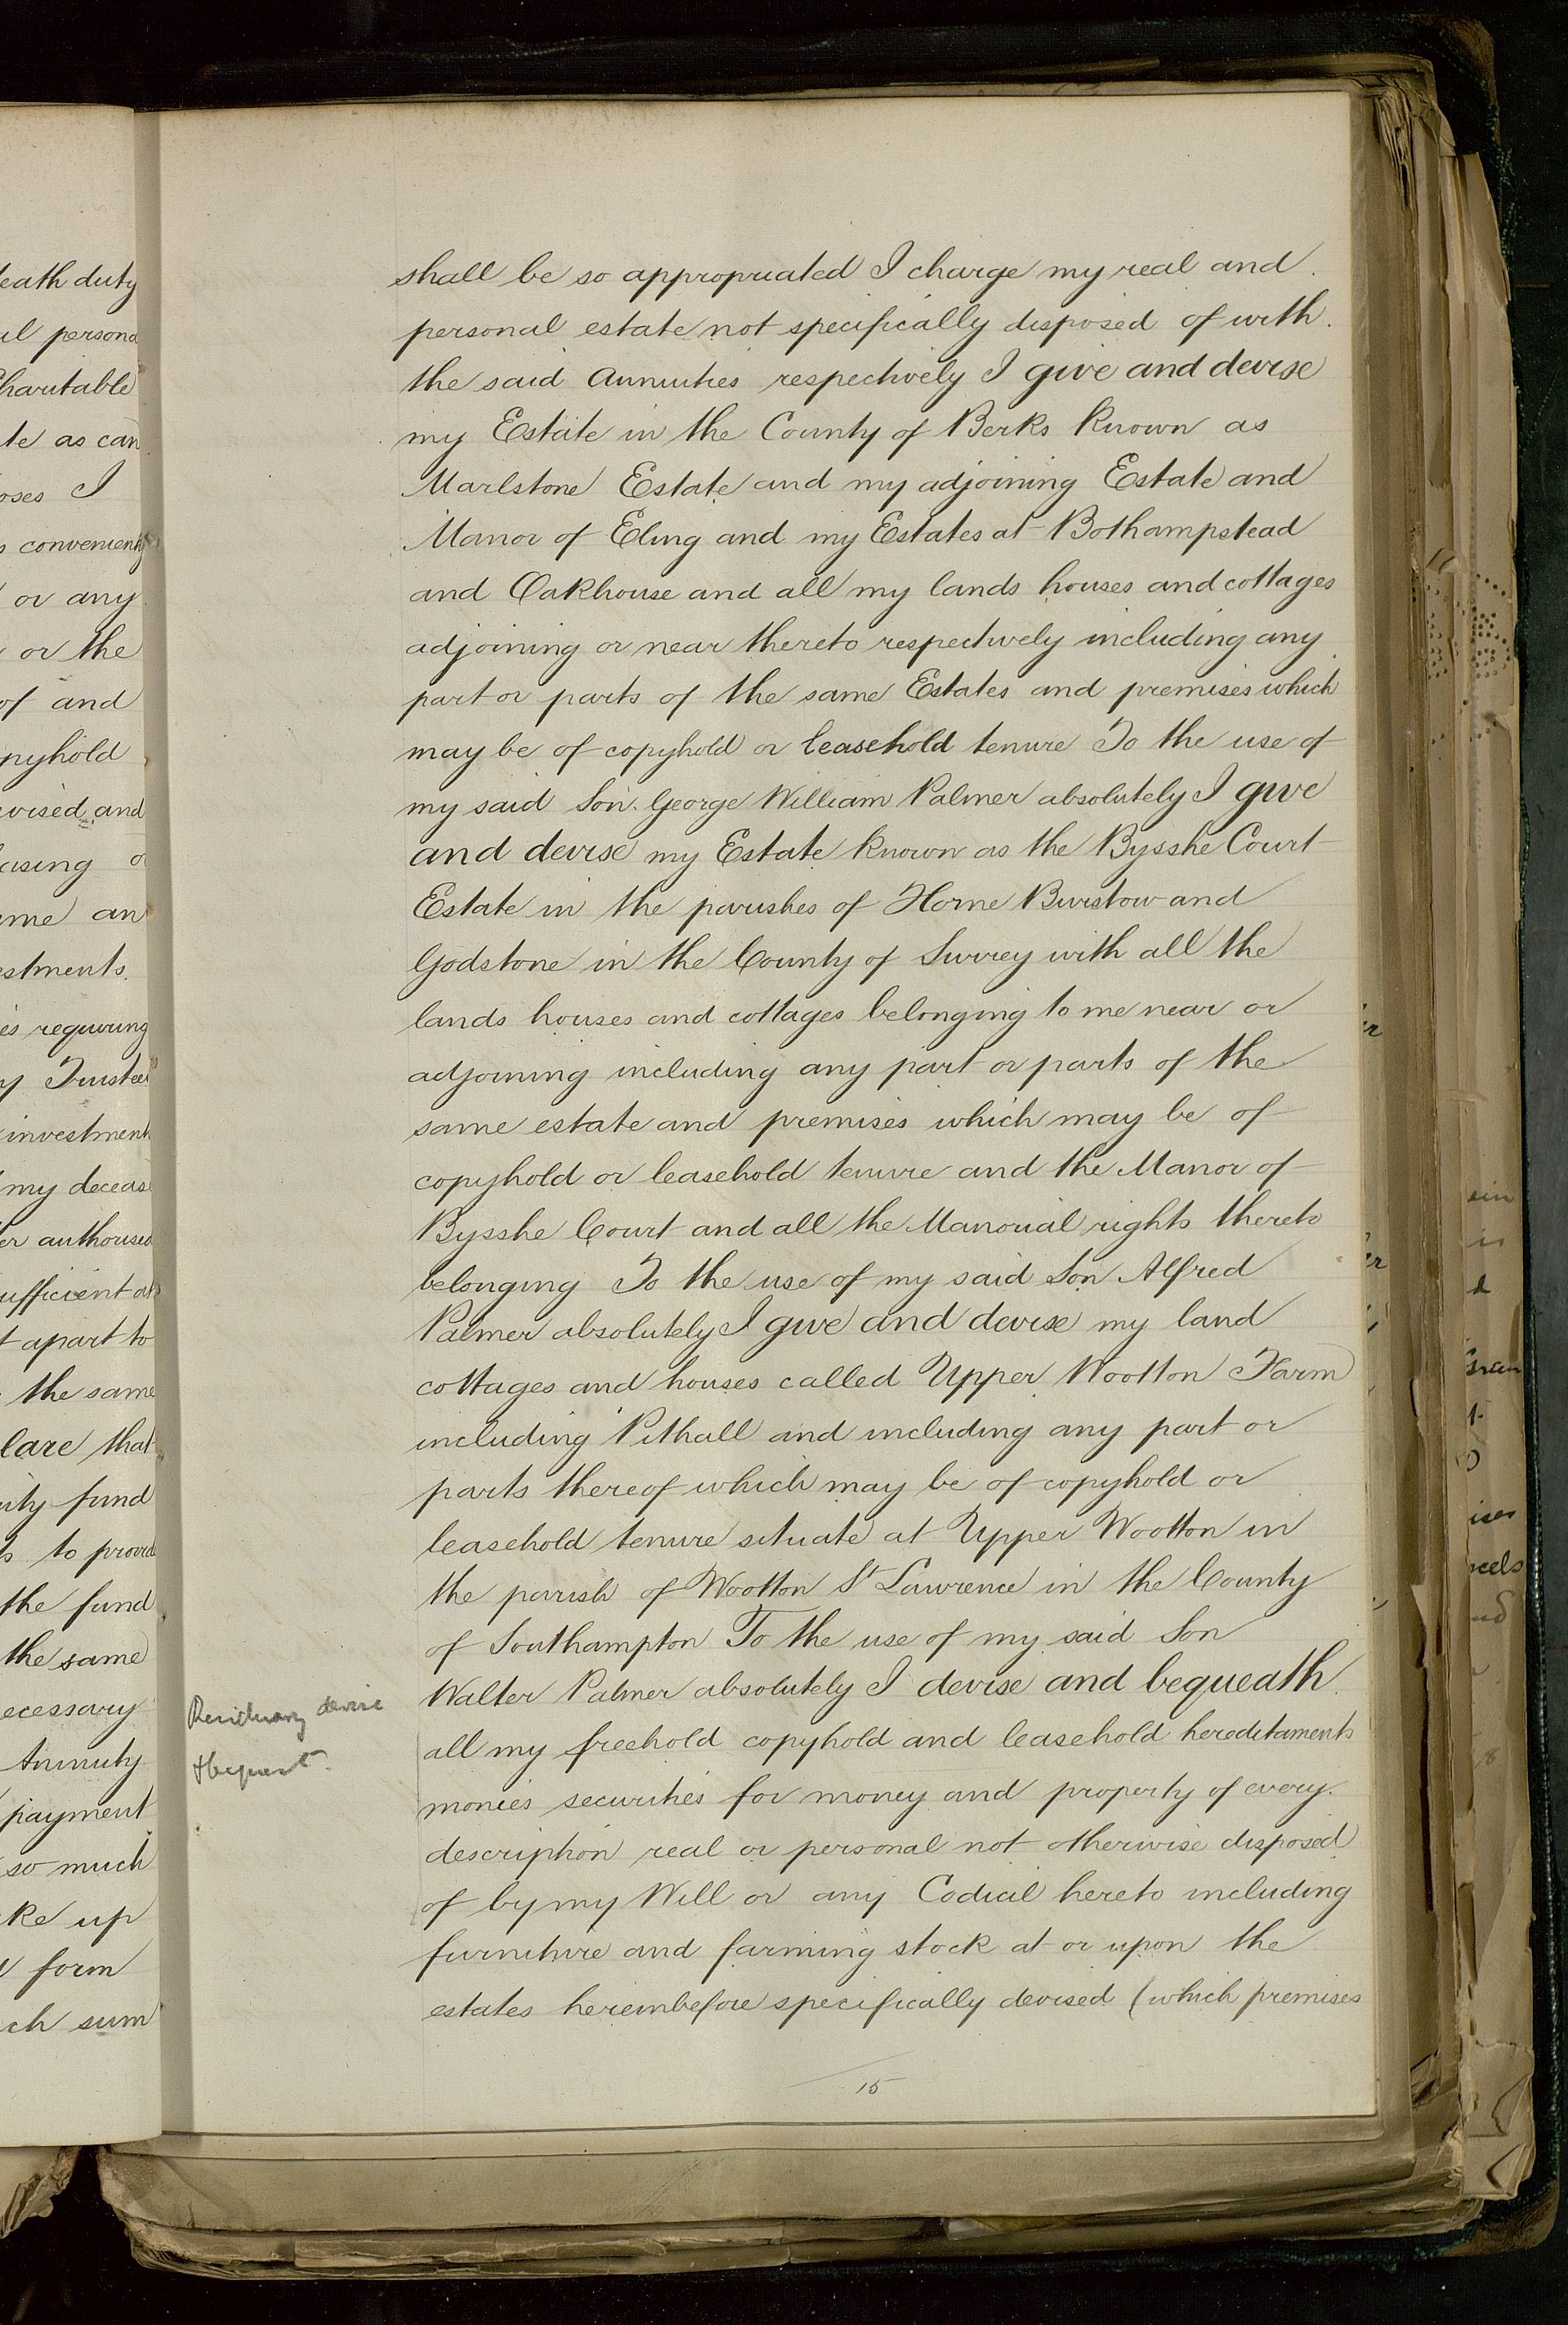 eath duty
al persona
Charitable
te as can
oses I
s convenientl
or any
or the
of and
opyhold
evised and
easing o
ame an
estments.
es requiring
y Trustee
investment
my deceas
er authorised
ufficient at
t apart to
the same
lare that
ity fund
s to provid
the fund
the same
ecessary
Annuity
payment
so much
ke up
form
ch sum
shall be so appropriated I charge my real and
personal estate not specifically disposed of with
the said Annuities respectively I give and devise
my Estate in the County of Berks known as
Marlstone Estate and my adjoining Estate and
Manor of Eling and my Estates at Bothampstead
and Oakhouse and all my lands houses and cottages
adjoining or near thereto respectively including any
part or parts of the same Estates and premises which
may be of copyhold or leasehold tenure To the use of
my said Son George William Palmer absolutely I give
and devise my Estate known as the Bysshe Court
Estate in the parishes of Horne Burstow and
Godstone in the County of Surrey with all the
lands houses and cottages belonging to me near or
adjoining including any part or parts of the
same estate and premises which may be of
copyhold or leasehold tenure and the Manor of
Bysshe Court and all the Manorial rights thereto
belonging To the use of my said Son Alfred
Palmer absolutely I give and devise my land
cottages and houses called Upper Wootton Farm
including Pithall and including any part or
parts thereof which may be of copyhold or
leasehold tenure situate at Upper Wootton in
the parish of Wootton St Lawrence in the County
of Southampton To the use of my said Son
Walter Palmer absolutely I devise and bequeath
Residuary devise
& bequest.
all my freehold copyhold and leasehold hereditaments
monies securities for money and property of every
description real or personal not otherwise disposed
of by my Will or any Codicil hereto including
furniture and farming stock at or upon the
estates hereinbefore specifically devised (which premises
15